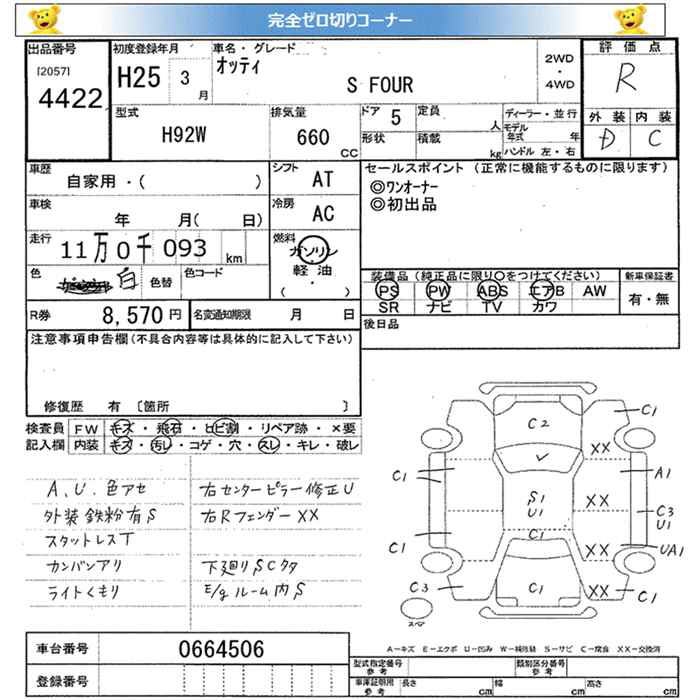 完全ゼロ切りコーナー
出品番号 初度登録年月 車名・グレード 評価点
[2057] オッティ 2WD・4WD
4422 H25 3月 S FOUR R
型式 排気量 ドア 5 定員 人 ディーラー・並行 外装 内装
H92W 660 CC 形状 積載 kg モデル年式 年 D C
ハンドル 左・右
車歴 シフト AT セールスポイント (正常に機能するものに限ります)
自家用・( ) ◎ワンオーナー
車検 年 月( 日) 冷房 AC ◎初出品
走行 11万0千093 km 燃料 ガソリン
軽油
・( )
色 白 色替 色コード
装備品(純正品に限り○をつけてください) 新車保証書
PS PW ABS エアB AW 有・無
SR ナビ TV カワ
R券 8,570円 名変通知期限 月 日 後日品
注意事項申告欄(不具合内容等は具体的に記入して下さい)
修復歴 有 〔箇所 〕
検査員 FW キズ・飛石・ヒビ割・リペア跡・×要
記入欄 内装 キズ・汚し・コゲ・穴・スレ・キレ・破レ
A、U、色アセ 右センターピラー修正U
外装鉄粉有S 右Rフェンダー XX
スタットレスT
カンバンアリ 下廻りSCタタ
ライトくもり E/gルーム内S
C2 C1
XX
C1 A1
S1 XX C3
U1 U1
C1 C1 XX UA1
C3 C1 XX C1
スペア
A-キズ E-エクボ U-凹み W-補修跡 S-サビ C-腐食 XX-交換済
車台番号 0664506
登録番号
型式指定番号 参考 類別区分番号 参考
車庫証明用 参考 長さ cm 幅 cm 高さ cm